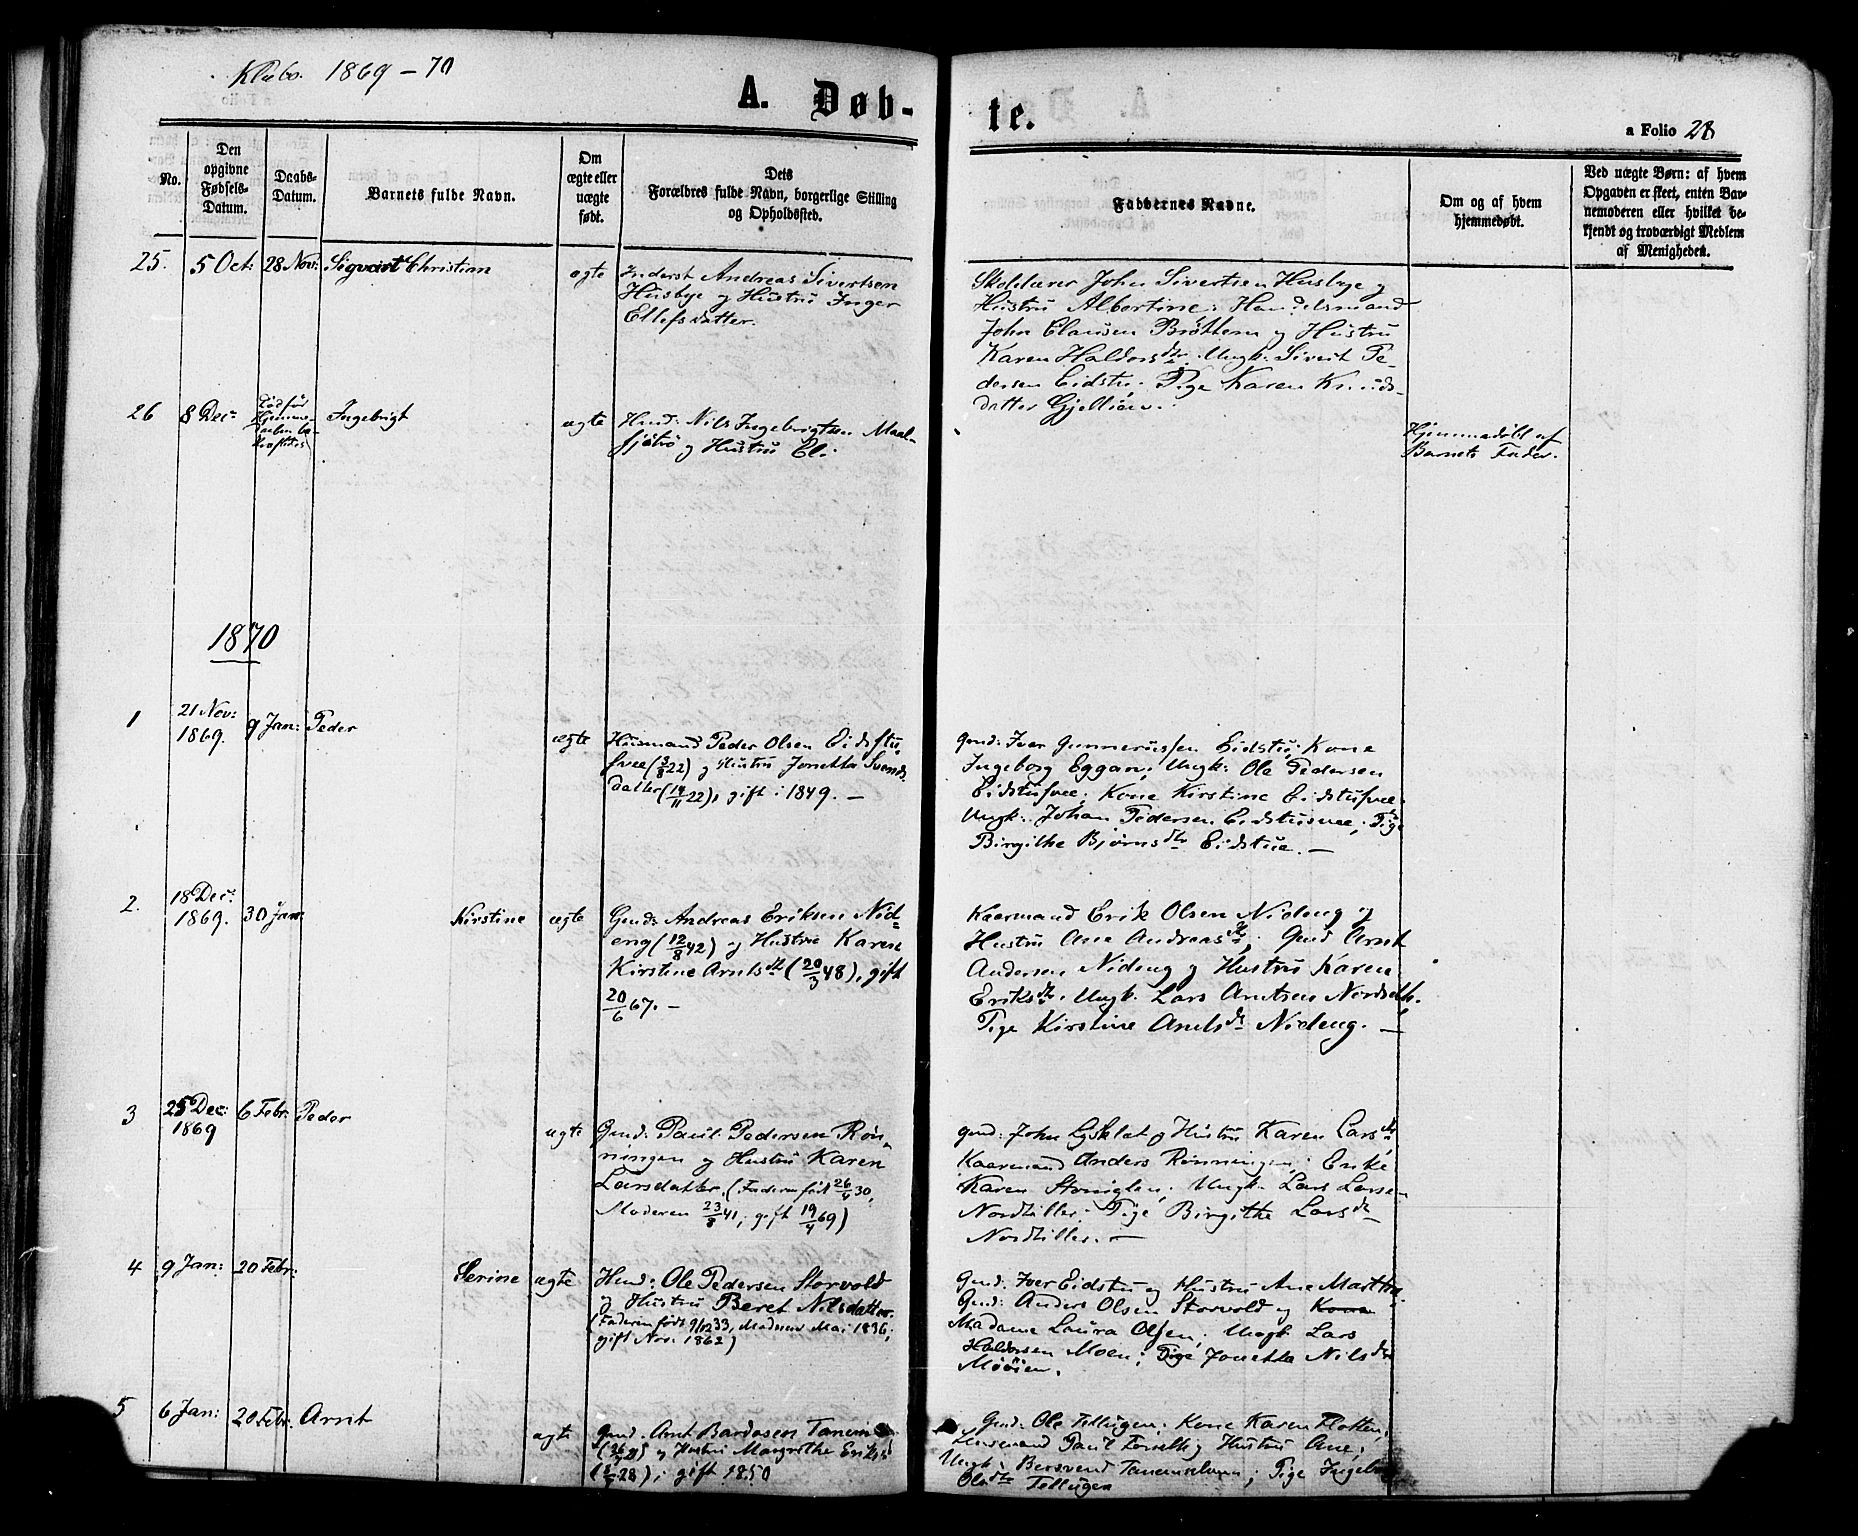 Klæbo. 1869-70
A. Døb-
te.
a Folio 28
No.
Den
opgivne
Fødsels-
Datum.
Daabs-
Datum.
Barnets fulde Navn.
Om
ægte eller
uægte
født.
Dets
Forældres fulde Navn, borgerlige Stilling
og Opholdssted.
Faddernes Navne.
Om og af hvem
hjemmedøbt.
Ved uægte Børn: af hvem
Opgaven er skeet, enten Bar-
nemoderen eller hvilket be-
kjendt og troværdigt Medlem
af Menigheden.
25. 5 Oct: 28 Nov: Sigvart Christian ægte
Inderst Andreas Sivertsen
Husbye og Hustru Inger
Ellefsdatter.
Skolelærer John Sivertsen Husbye og
Hustru Albertine; Handelsmand
John Clausen Brøttem og Hustru
Karen Haldorsdtr. Ungk: Sivert Pe-
dersen Eidstu; Pige Karen Knuds-
datter Gjelliøn.
26 8 Dec:
Død før
Hjemme-
daaben be-
kræftedes
Ingebrigt ægte
Husd: Nils Ingebrigtsen Maal-
sjøtrø og Hustru Eli
Hjemmedøbt af
Barnets Fader.
1870
1 21 Nov:
1869. 9 Jan: Peder ægte
Husmand Peder Olsen Eidstu
svee (3/8 22) og Hustru Jonetta Svends
datter (14/11 22), gift i 1849. —
Gmd: Iver Gunnerussen Eidstu; Kone
Ingeborg Eggan; Ungk: Ole Pedersen
Eidstusvee; Kone Kirstine Eidstusvee;
Ungk: Johan Pedersen Eidstusvee; Pige
Birgithe Bjørnsdtr Eidstue. —
2. 18 Dec:
1869. 30 Jan: Kirstine ægte
Gmd: Andreas Eriksen Nid=
eng (12/8 42) og Hustru Karen
Kirstine Arntsdtr (20/3 48), gift
20/6 67. —
Kaarmand Erik Olsen Nideng og
Hustru Ane Andreasdtr; Gmd Arnt
Andersen Nideng og Hustru Karen
Eriksdtr. Ungk. Lars Arntsen Nordseth.
Pige Kirstine Arntsdtr Nideng. —
3 25 Dec:
1869 6 Febr: Peder ægte
Gmd: Paul Pedersen Røn-
ningen og Hustru Karen
Larsdatter. (Faderen født 26/4 30,
Moderen 23/8 41; gift 19/4 69)
Gmd: John Lysklæt og Hustru Karen Larsdtr
Kaarmand Anders Rønningen; Enke
Karen Stenigten; Ungk. Lars Larsen
Nordtiller; Pige Birgithe Larsdtr
Nordtiller. —
4 9 Jan: 20 Febr: Serine ægte
Husd: Ole Pedersen Storvold
og Hustru Beret Nilsdatter.
(Faderen født 9/12 33, Moderen Mai 1836;
gift Nov. 1862)
Gmd: Iver Eidstu og Hustru Ane Martha;
Gmd: Anders Olsen Storvold og Kone
Madame Laura Olsen; Ungk. Lars
Haldorsen Moen; Pige Jonetta Nilsdtr
Moøien.
5 6 Jan: 20 Febr: Arnt ægte
Gmd: Arnt Bardosen Tanem
og Hustru Margrethe Eriksd
gift 1850
Gmd: Ole Tellugen; Kone Karen Flotten;
Husmand Paul Forseth og Hustru Ane;
Ungk: Bersvend Tanem; Pige Ingeborg
Olsdtr Tellugen